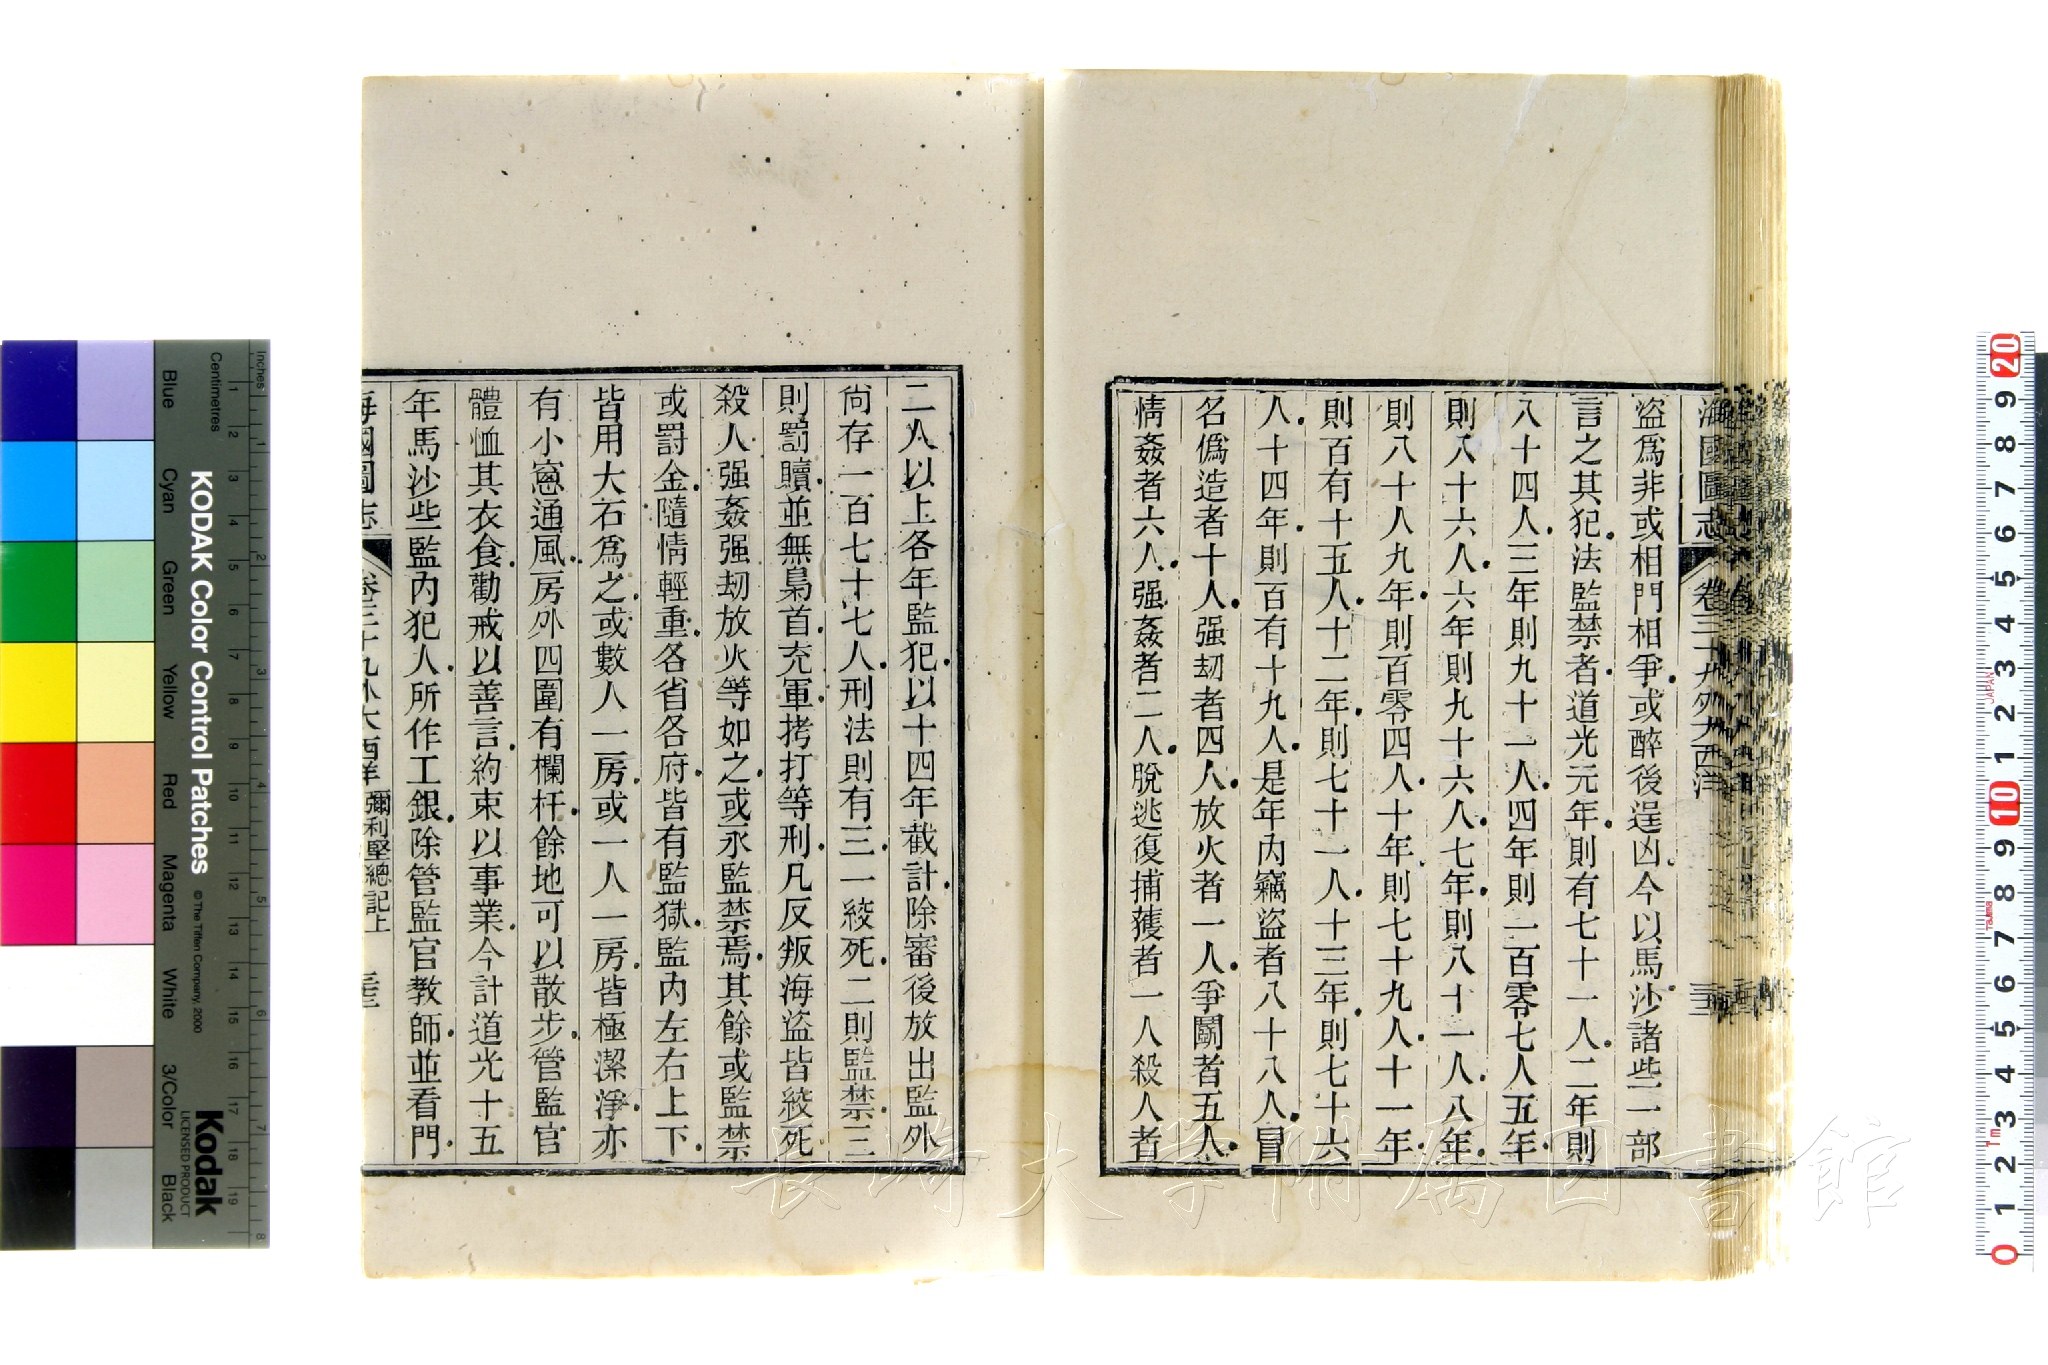 海國圖志 卷三十九外大西洋
盜爲非或相鬥相爭或醉後逞凶今以馬沙諸些一部
言之其犯法監禁者道光元年則有七十一人二年則
八十四人三年則九十一人四年則一百零七人五年
則八十六人六年則九十六人七年則八十一人八年
則八十八九年則百零四人十年則七十九人十一年
則百有十五人十二年則七十一人十三年則七十六
人十四年則百有十九人是年內竊盜者八十八人冒
名僞造者十人强刼者四人放火者一人爭鬬者五人
情姦者六人强姦者二人脫逃復捕獲者一人殺人者
二人以上各年監犯以十四年截計除審後放出監外
尚存一百七十七人刑法則有三一絞死二則監禁三
則罰贖並無梟首充軍拷打等刑凡反叛海盜皆絞死
殺人强姦强刼放火等如之或永監禁焉其餘或監禁
或罸金隨情輕重各省各府皆有監獄監內左右上下
皆用大石爲之或數人一房或一人一房皆極潔淨亦
有小窻通風房外四圍有欄杆餘地可以散步管監官
體恤其衣食勸戒以善言約束以事業今計道光十五
年馬沙些監內犯人所作工銀除管監官教師並看門
海國圖志 卷三十九外大西洋 彌利堅總記上
長崎大学附属図書館
KODAK Color Control Patches
© The Tiffen Company, 2000
Kodak
LICENSED PRODUCT
Blue Cyan Green Yellow Red Magenta White 3/Color Black
Inches 1 2 3 4 5 6 7 8
Centimetres 1 2 3 4 5 6 7 8 9 10 11 12 13 14 15 16 17 18 19
20 9 8 7 6 5 4 3 2 1 10 9 8 7 6 5 4 3 2 1 0
JAPAN